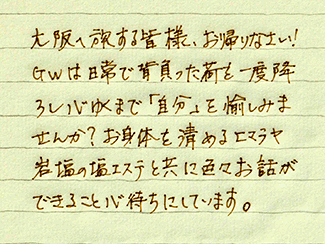 大阪へ旅する皆様、お帰りなさい!
GWは日常で背負った荷を一度降
ろし心ゆくまで「自分」を愉しみま
せんか?お身体を清めるヒマラヤ
岩塩の塩エステと共に色々お話が
できること心待ちにしています。